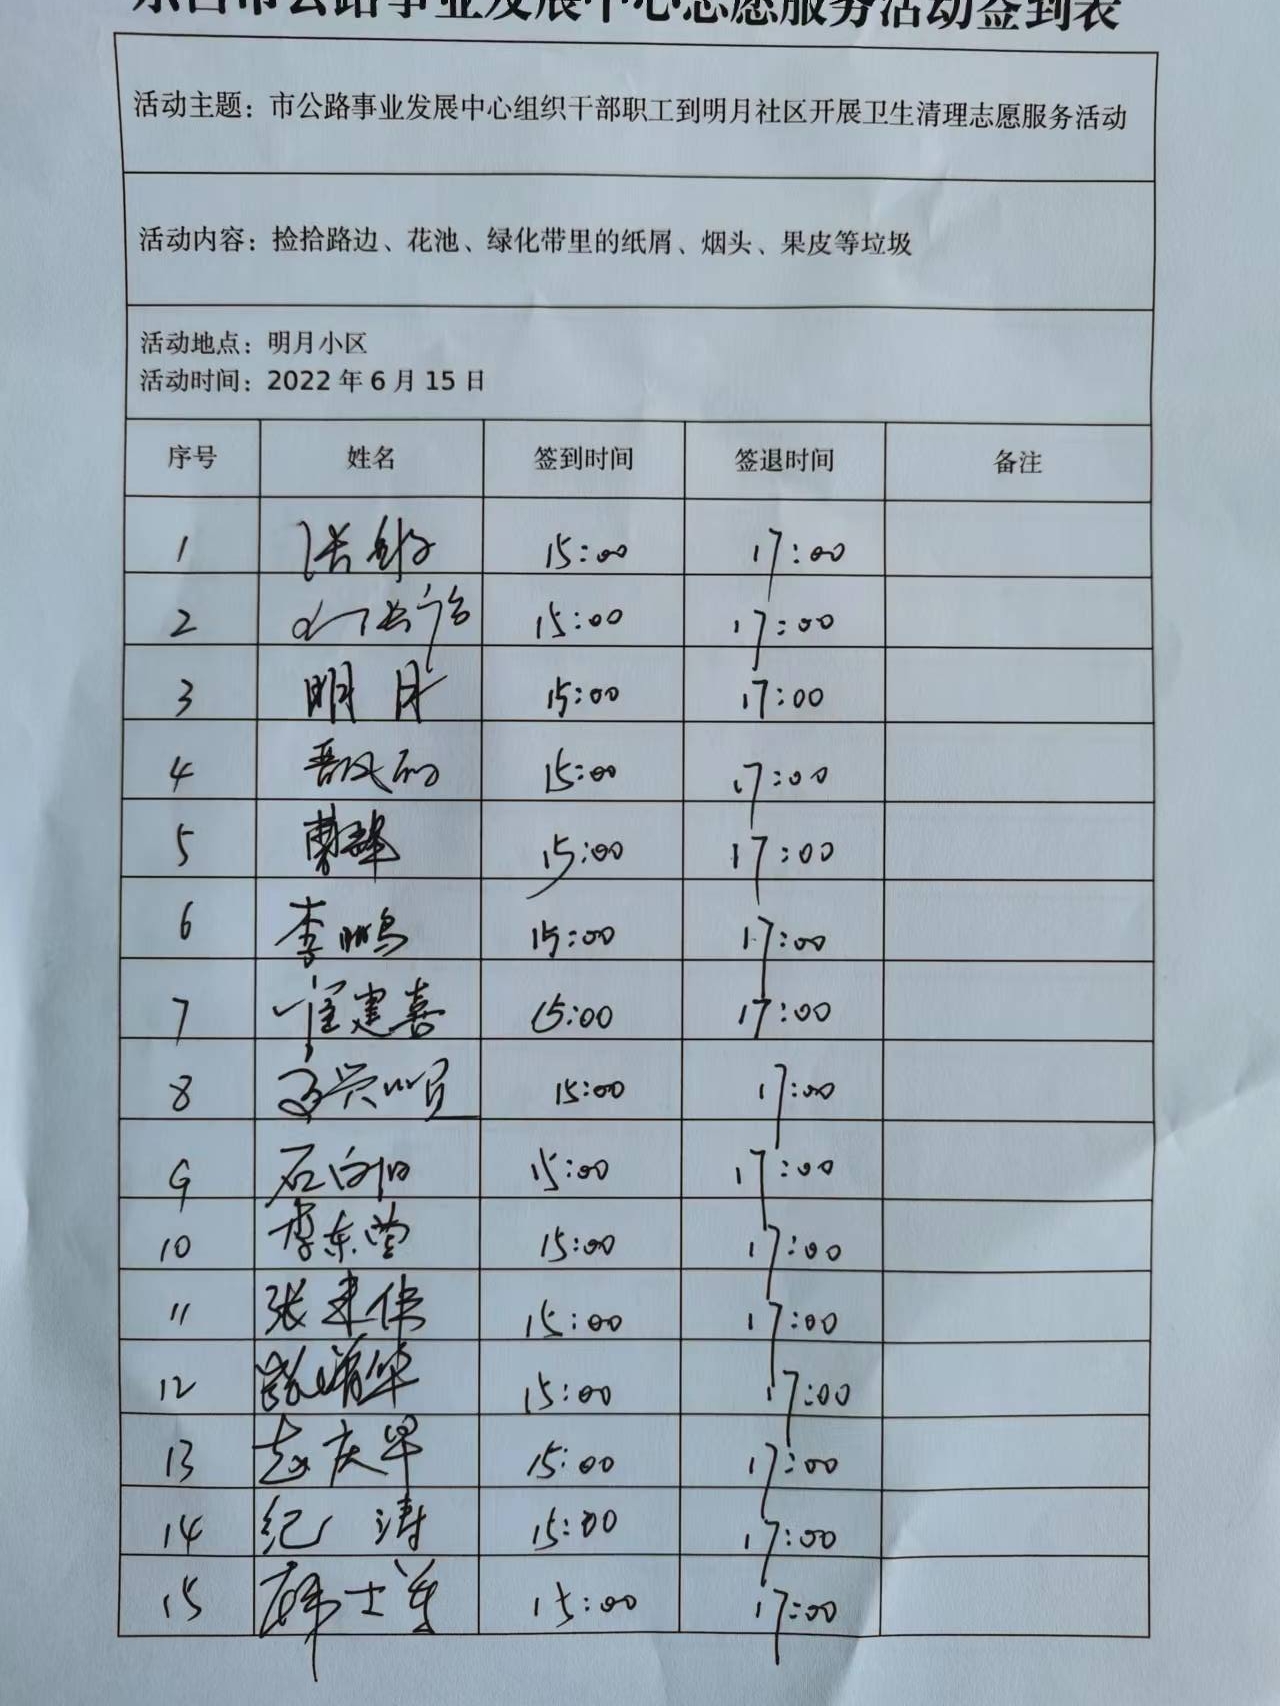 市公路事业发展中心志愿服务活动签到表
活动主题：市公路事业发展中心组织干部职工到明月社区开展卫生清理志愿服务活动
活动内容：捡拾路边、花池、绿化带里的纸屑、烟头、果皮等垃圾
活动地点：明月小区
活动时间：2022年6月15日
序号 姓名 签到时间 签退时间 备注
1 15:00 17:00
2 15:00 17:00
3 明月 15:00 17:00
4 15:00 17:00
5 15:00 17:00
6 李鹏 15:00 17:00
7 崔建喜 15:00 17:00
8 15:00 17:00
9 15:00 17:00
10 李东营 15:00 17:00
11 张来保 15:00 17:00
12 15:00 17:00
13 赵庆早 15:00 17:00
14 纪涛 15:00 17:00
15 韩士军 15:00 17:00